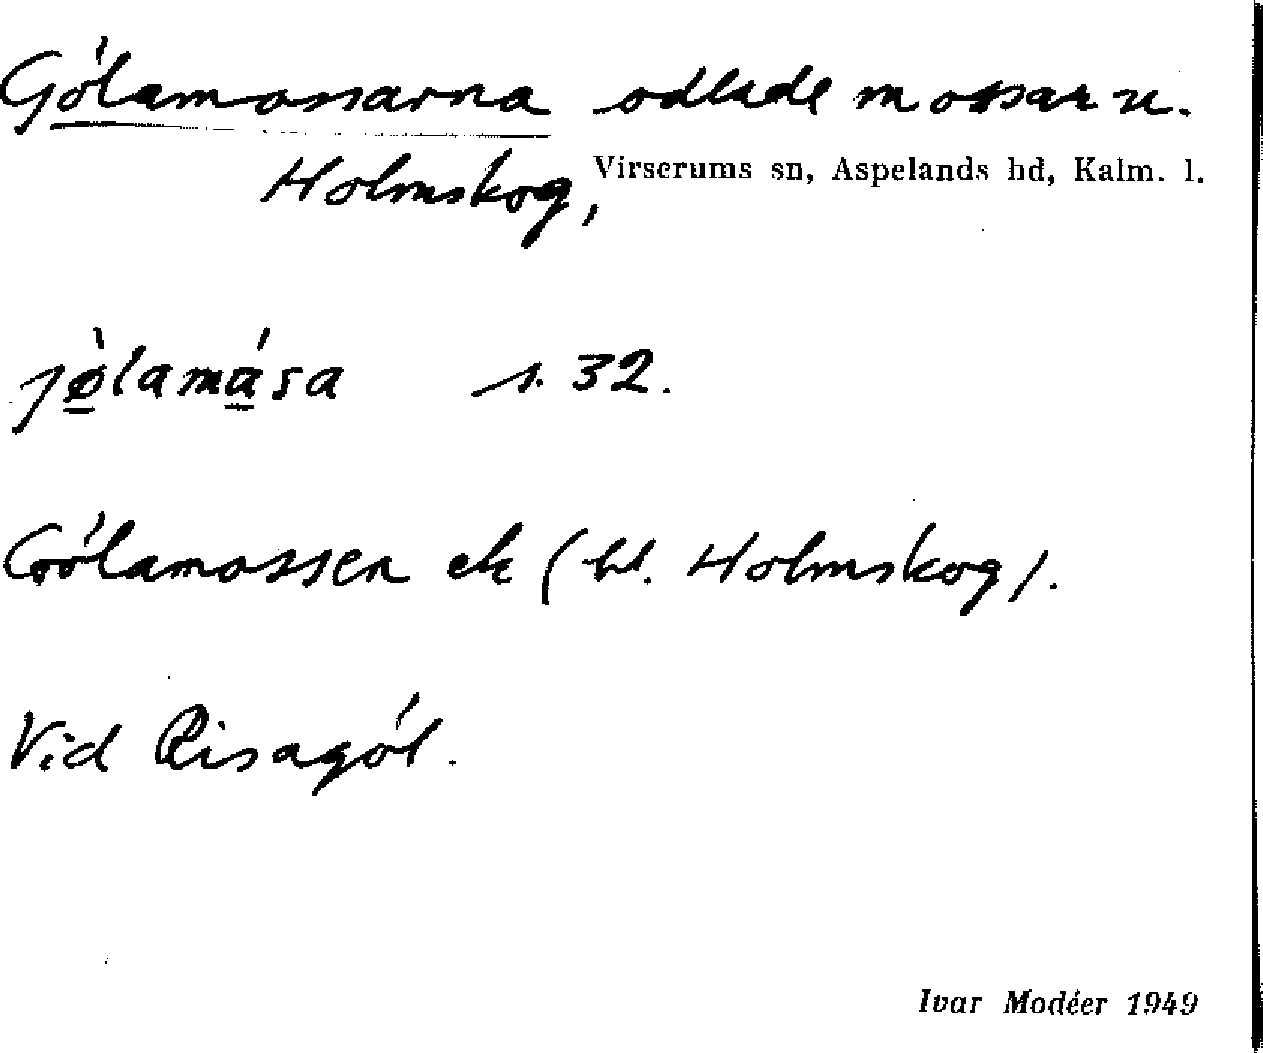 Gólamossarna odlade mossar u.
Holmskog, Virserums sn, Aspelands hd, Kalm. l.
jø̀lamása s. 32.
Gólamossen ek (bl. Holmskog).
Vid Risagól.
Ivar Modéer 1949